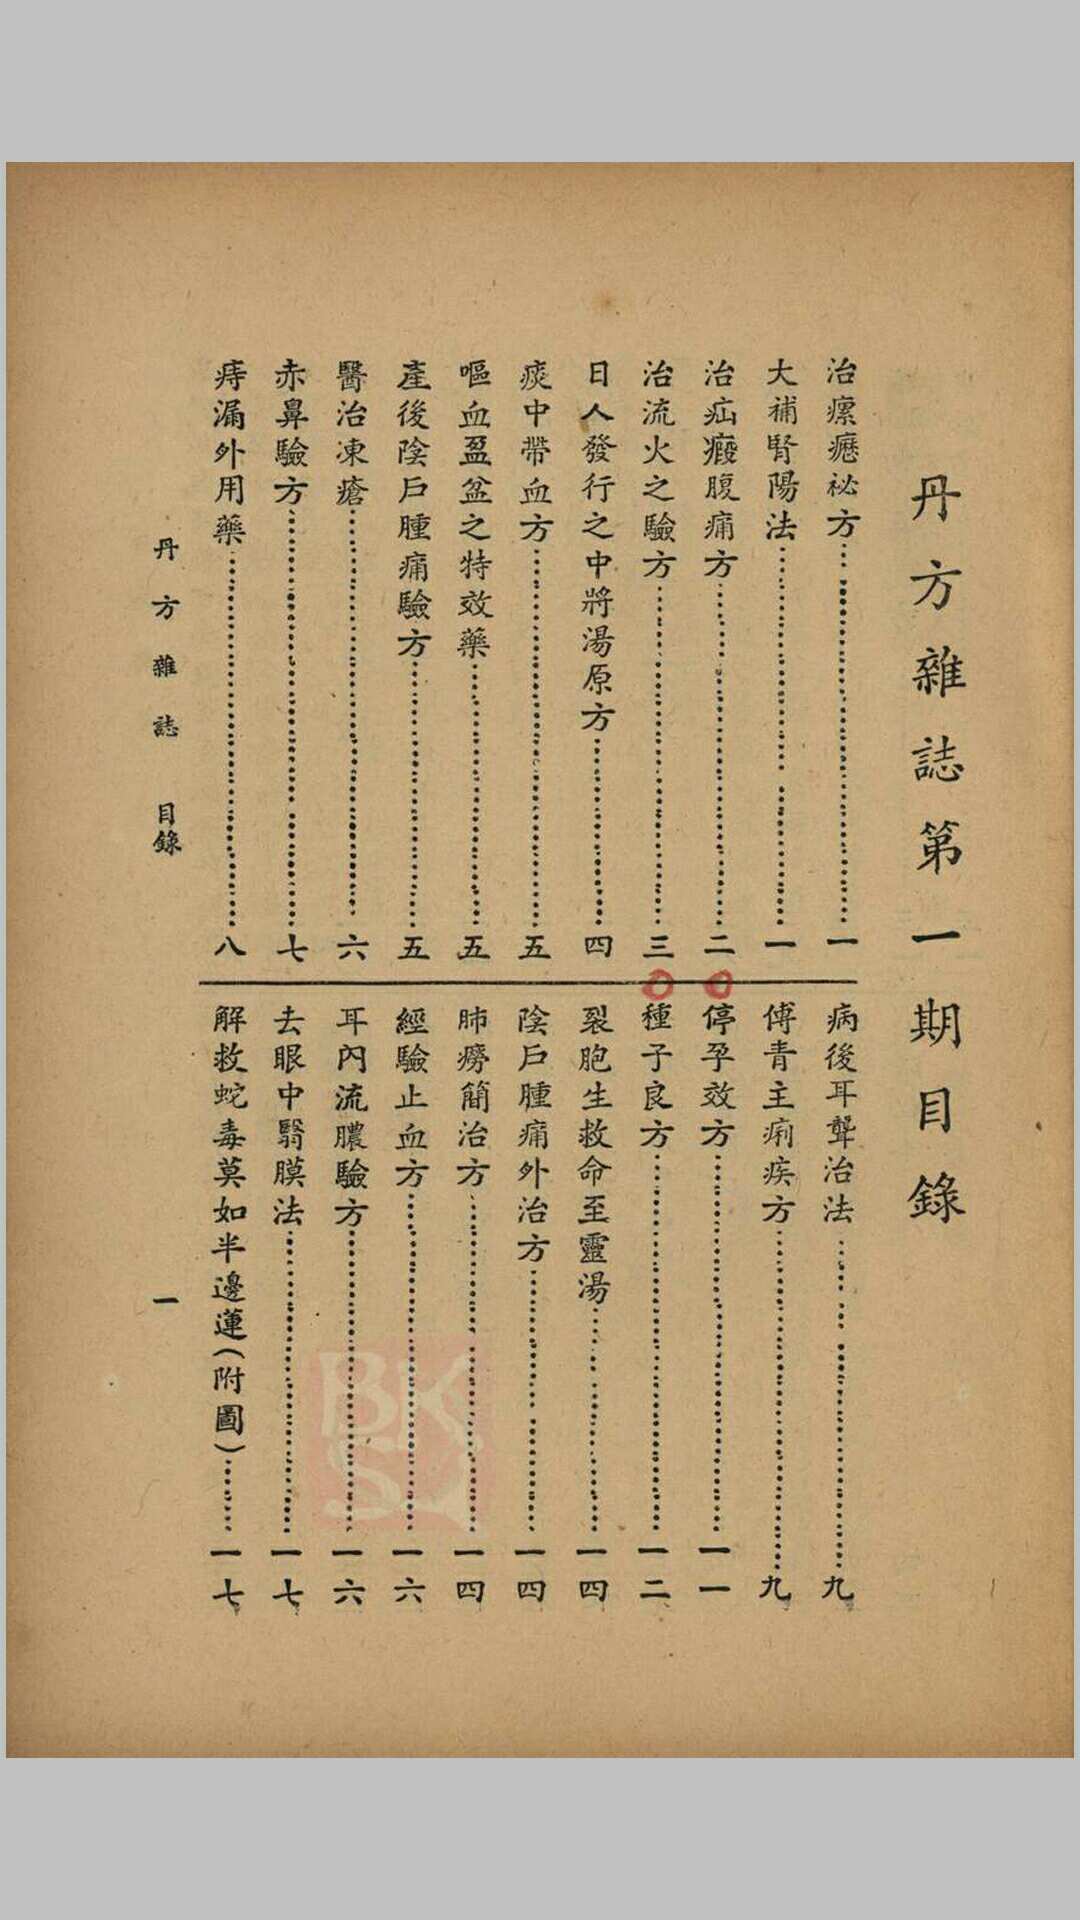 丹方雜誌第一期目錄
治瘰癧祕方……一
大補腎陽法……一
治疝瘕腹痛方……二
治流火之驗方……三
日人發行之中將湯原方……四
痰中帶血方……五
嘔血盈盆之特效藥……五
產後陰戶腫痛驗方……五
醫治凍瘡……六
赤鼻驗方……七
痔漏外用藥……八
病後耳聾治法……九
傅青主痢疾方……九
停孕效方……一一
種子良方……一二
裂胞生救命至靈湯……一四
陰戶腫痛外治方……一四
肺癆簡治方……一四
經驗止血方……一六
耳內流膿驗方……一六
去眼中翳膜法……一七
解救蛇毒莫如半邊蓮(附圖)……一七
丹方雜誌 目錄 一